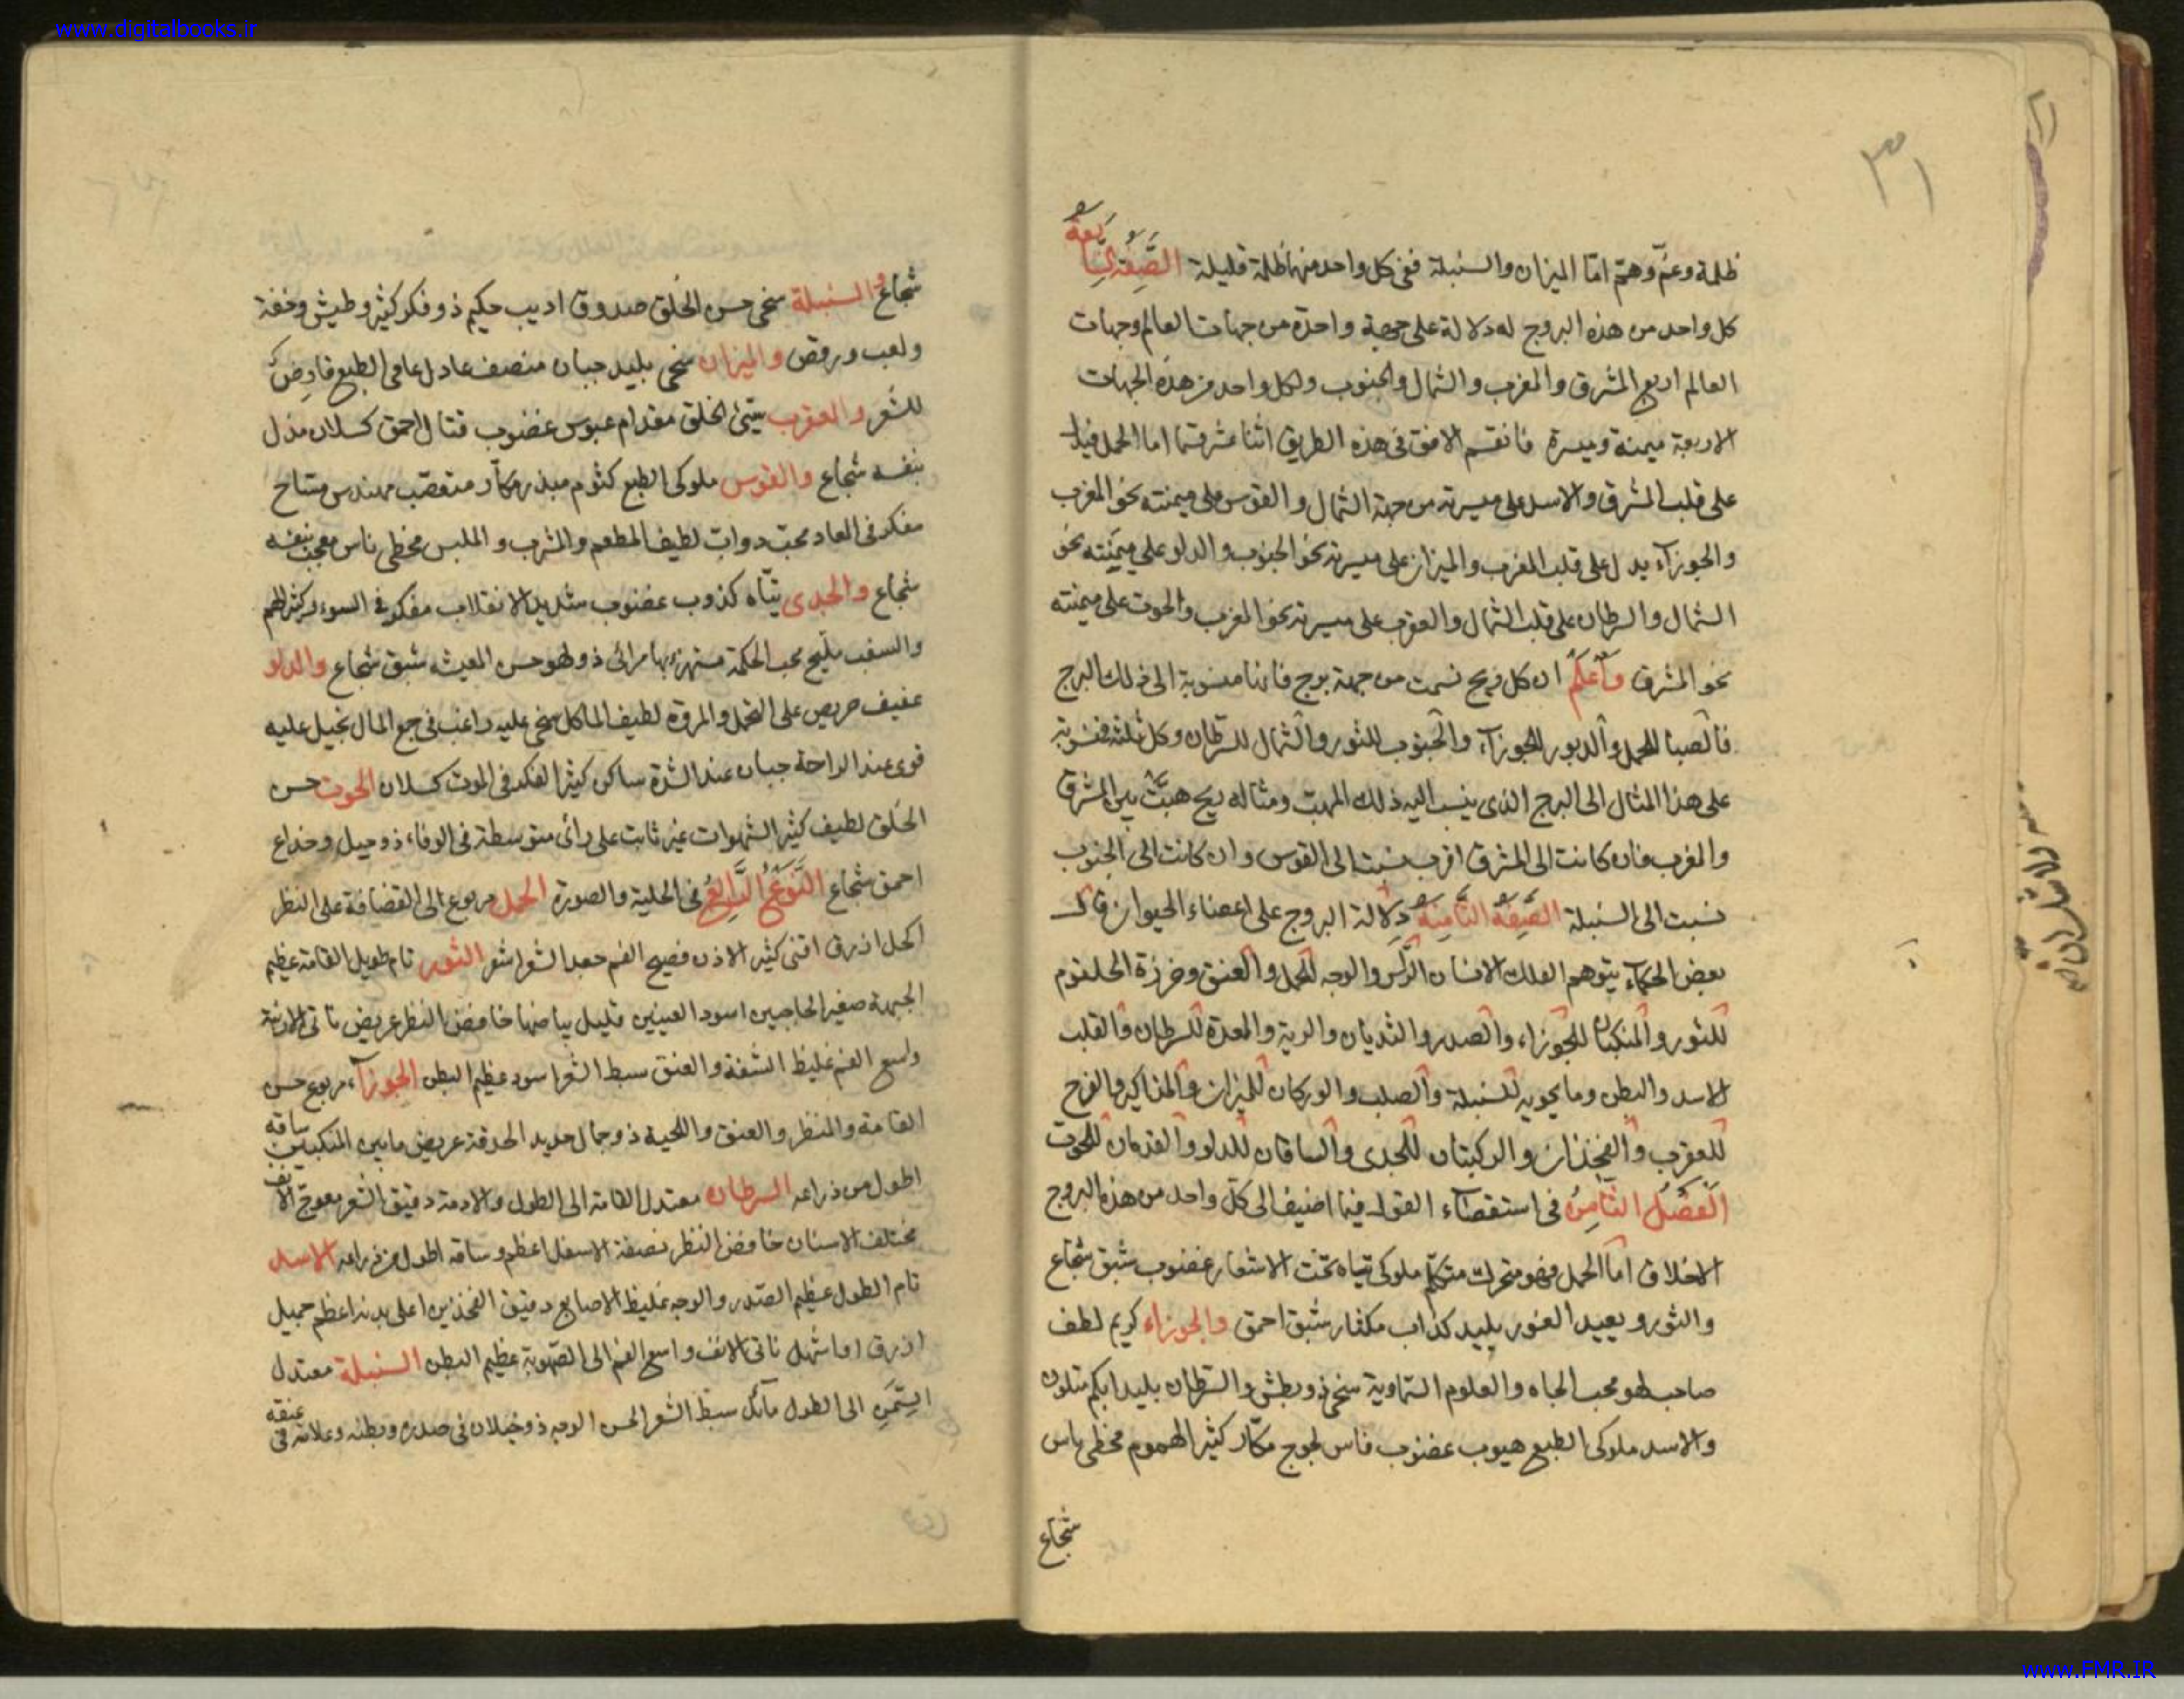 www.digitalbooks.ir
٣١
ظلمة وغم وهم اما الميزان والسنبلة ففى كل واحد منهما ظلمة قليلة الصفة السابعة
كل واحد من هذه البروج له دلالة على جهة واحدة من جهات العالم وجهات
العالم اربع المشرق والمغرب والشمال والجنوب ولكل واحد من هذه الجهات
الاربعة ميمنة وميسرة فانقسم الافق فى هذه الطريق اثنا عشر قسما اما الحمل فيدل
على قلب المشرق والاسد على ميسرته من جهة الشمال والقوس على ميمنته نحو المغرب
والجوزآء يدل على قلب المغرب والميزان على ميسرته نحو الجنوب والدلو على ميمنته نحو
الشمال والسرطان على قلب الشمال والعقرب على ميسرته نحو المغرب والحوت على ميمنته
نحو المشرق وآعلم ان كل ريح نسمت من جهة برج فانها منسوبة الى ذلك البرج
فالصبا للحمل والدبور للجوزآء والجنوب للثور والشمال للسرطان وكل ثلثه فنسوبة
على هذا المثال الى البرج الذى ينسب اليه ذلك المهبت ومثاله ريح هبت بين المشرق
والمغرب فان كانت الى المشرق اقرب نسبت الى القوس وان كانت الى الجنوب
نسبت الى السنبلة الصفة الثامنة دلالة البروج على اعضاء الحيوان قال
بعض الحكمآء يتوهم الفلك الانسان الرأس والوجه للحمل والعنق وخرزة الحلقوم
للثور والمنكبان للجوزاء والصدر والثديان والرية والمعدة للسرطان والقلب
الاسد والبطن وما يحويه للسنبلة والصلب والوركان للميزان والمذاكير والفرج
للعقرب والفخذان والركبتان للجدى والساقان للدلو والقدمان للحوت
الفصل الثامن فى استقصآء القول فيما اضيف الى كل واحد من هذه البروج
الاخلاق اما الحمل فهو متحرك متكلم ملوكى تياه تحت الاشعار غضوب شبق شجاع
والثور بعيد الغور بليد كذاب مكفار شبق احمق والجوزاء كريم لطف
صاحب لهو محب الجاه والعلوم السماوية سخى ذو بطش والسرطان بليد ابكم متلون
والاسد ملوكى الطبع هيوب غضوب قاس لجوج مكار كثير الهموم مخطى ياس
شجاع
شجاع والسنبلة سخى حسن الخلق صدوق اديب حكيم ذو فكر كثير وطيش وخفة
ولعب ورقص والميزان سخى بليد جبان منصف عادل عامى الطبع قارض
للشعر والعقرب سيئ الخلق مقدام عبوس غضوب قتال احمق كسلان مذل
بنفسه شجاع والقوس ملوكى الطبع كتوم مبذر مكار متعصب مهندس مستاح
مفكر فى العاد محبت دواب لطيف المطعم والمشرب والملبس مخطى ناس معجب بنفسه
شجاع والجدى تياه كذوب غضوب شديد الانقلاب مفكر فى السوء كثير الهم
والسغب مليح محب الحكمة مستهزء بها مرائى ذو لهو حسن المعيشه شبق شجاع والدلو
عفيف حريص على التجمل والمروة لطيف الماكل سخى عليه راغب فى جمع المال بخيل عليه
قوى عند الراحة جبان عند الشدة ساكن كثير الفكر فى الموت كسلان الحوت حسن
الخلق لطيف كثير الشهوات غير ثابت على رائ متوسطة فى الوفاء ذو حيل وخداع
احمق شجاع النوع الرابع فى الحلية والصورة الحمل مربوع الى القضافة على النظر
اكحل ازرق اقنى كثير الاذن فصيح الفم جعد الشعر اشقر الثور تام طويل القامة عظيم
الجبهة صغير الحاجبين اسود العينين قليل بياضها خافض النظر عريض ناتى الارنبة
واسع الفم غليظ الشفة والعنق سبط الشعر اسود عظيم البطن الجوزآء مربوع حسن
القامة والمنظر والعنق واللحية ذو جمال حديد الحدقة عريض مابين المنكبين ساقه
اطول من ذراعه السرطان معتدل القامة الى الطول والادمة دقيق الشعر معوج الانف
مختلف الاسنان خافض النظر نصفة الاسفل اعظم وساقه اطول من ذراعه الاسد
تام الطول عظيم الصدر والوجه غليظ الاصابع دقيق الفخذين اعلى بدنه اعظم جميل
ازرق او اشهل ناتى الانف واسع الفم الى الصهوبة عظيم البطن السنبلة معتدل
السمن الى الطول مائل سبط الشعر الحسن الوجه ذو خيلان فى صدره وبطنه وعلامة فى عنقه
www.FMR.IR